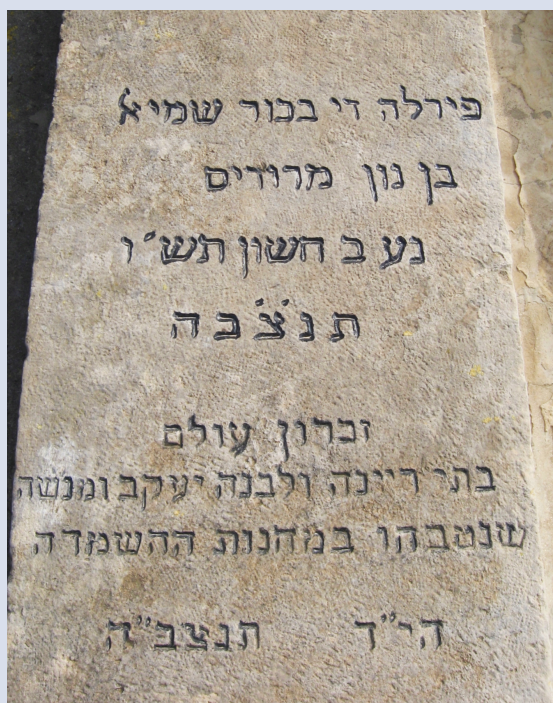 פירלה די בכור שמיא'
בן נון מרודים
נע ב חשון תש״ו
ת נ צ ב ה
זכרון עולם
בתי ריינה ולבנה יעקב ומנשה
שנטבהו במחנות ההשמדה
הי״ד תנצב״ה